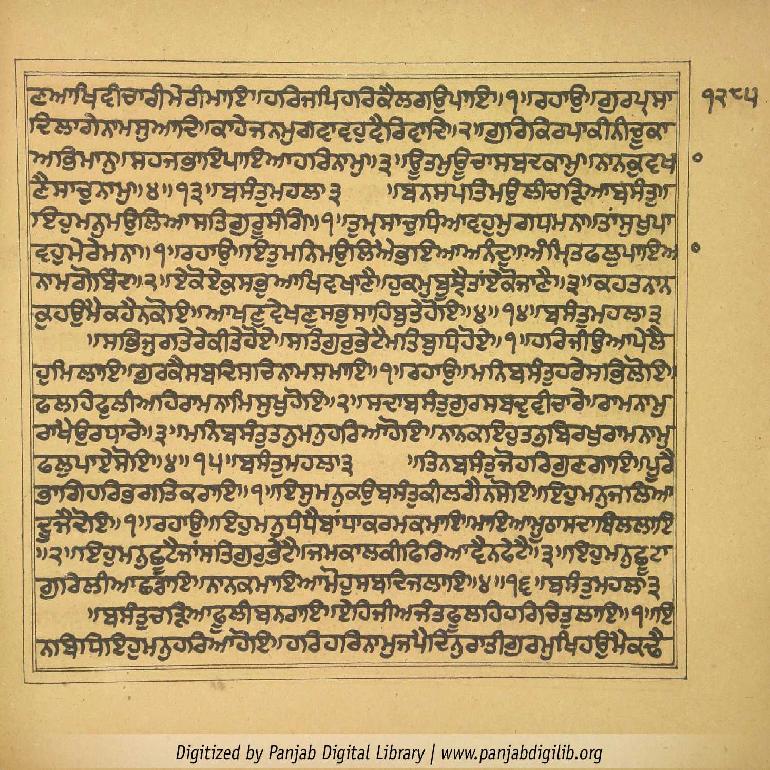 ਣਆਖਿਵੀਚਾਰੀਮੇਰੀਮਾਇ॥ਹਰਿਜਪਿਹਰਿਕੈਲਗਉਪਾਇ॥੧॥ਰਹਾਉ॥ਗੁਰਪ੍ਰਸਾ
੧੨੮੫
ਦਿਲਾਗੇਨਾਮਸੁਆਦਿ॥ਕਾਹੇਜਨਮੁਗਵਾਵਹੁਵੈਰਿਵਾਦਿ॥੨॥ਗੁਰਿਕਿਰਪਾਕੀਨੀਚੂਕਾ
ਅਭਿਮਾਨੁ॥ਸਹਜਭਾਇਪਾਇਆਹਰਿਨਾਮੁ॥੩॥ਊਤਮੁਊਚਾਸਬਦਕਾਮੁ॥ਨਾਨਕੁਵਖਾ
ਣੈਸਾਚੁਨਾਮੁ॥੪॥੧੩॥ਬਸੰਤੁਮਹਲਾ੩ ॥ਬਨਸਪਤਿਮਉਲੀਚੜਿਆਬਸੰਤੁ॥
ਇਹੁਮਨੁਮਉਲਿਆਸਤਿਗੁਰੂਸੰਗਿ॥੧॥ਤੁਮ੍ਹਸਾਚੁਧਿਆਵਹੁਮੁਗਧਮਨਾ॥ਤਾਂਸੁਖੁਪਾ
ਵਹੁਮੇਰੇਮਨਾ॥੧॥ਰਹਾਉ॥ਇਤੁਮਨਿਮਉਲਿਐਭਇਆਅਨੰਦੁ॥ਅੰਮ੍ਰਿਤਫਲੁਪਾਇਆ
ਨਾਮਗੋਬਿੰਦ॥੨॥ਏਕੋਏਕੁਸਭੁਆਖਿਵਖਾਣੈ॥ਹੁਕਮੁਬੂਝੈਤਾਂਏਕੋਜਾਣੈ॥੩॥ਕਹਤਨਾਨ
ਕੁਹਉਮੈਕਹੈਨਕੋਇ॥ਆਖਣੁਦੇਖਣੁਸਭੁਸਾਹਿਬਤੇਹੋਇ॥੪॥੧੪॥ਬਸੰਤੁਮਹਲਾ੩
॥ਸਭਿਜੁਗਤੇਰੇਕੀਤੇਹੋਏ॥ਸਤਿਗੁਰੁਭੇਟੈਮਤਿਬੁਧਿਹੋਏ॥੧॥ਹਰਿਜੀਉਆਪੇਲੈ
ਹੁਮਿਲਾਇ॥ਗੁਰਕੈਸਬਦਿਸਚਿਨਾਮਸਮਾਇ॥੧॥ਰਹਾਉ॥ਮਨਿਬਸੰਤੁਹਰੇਸਭਿਲੋਇ॥
ਫਲਹਿਫੁਲੀਅਹਿਰਾਮਨਾਮਿਸੁਖੁਹੋਇ॥੨॥ਸਦਾਬਸੰਤੁਗੁਰਸਬਦੁਵੀਚਾਰੇ॥ਰਾਮਨਾਮੁ
ਰਾਖੈਉਰਧਾਰੇ॥੩॥ਮਨਿਬਸੰਤੁਤਨੁਮਨੁਹਰਿਆਹੋਇ॥ਨਾਨਕਇਹੁਤਨੁਬਿਰਖੁਰਾਮਨਾਮੁ
ਫਲੁਪਾਏਸੋਇ॥੪॥੧੫॥ਬਸੰਤੁਮਹਲਾ੩ ॥ਤਿਨਬਸੰਤੁਜੋਹਰਿਗੁਣਗਾਇ॥ਪੂਰੈ
ਭਾਗਿਹਰਿਭਗਤਿਕਰਾਇ॥੧॥ਇਸੁਮਨਕਉਬਸੰਤਕੀਲਗੈਨਸੋਇ॥ਇਹੁਮਨੁਜਲਿਆ
ਦੂਜੈਦੋਇ॥੧॥ਰਹਾਉ॥ਇਹੁਮਨੁਧੰਧੈਬਾਂਧਾਕਰਮਕਮਾਇ॥ਮਾਇਆਮੂਠਾਸਦਾਬਿਲਲਾਇ
॥੨॥ਇਹੁਮਨੁਛੂਟੈਜਾਂਸਤਿਗੁਰੁਭੇਟੈ॥ਜਮਕਾਲਕੀਫਿਰਿਆਵੈਨਫੇਟੈ॥੩॥ਇਹੁਮਨੁਛੂਟਾ
ਗੁਰਿਲੀਆਛਡਾਇ॥ਨਾਨਕਮਾਇਆਮੋਹੁਸਬਦਿਜਲਾਇ॥੪॥੧੬॥ਬਸੰਤੁਮਹਲਾ੩
॥ਬਸੰਤੁਚੜਿਆਫੂਲੀਬਨਰਾਇ॥ਏਹਿਜੀਅਜੰਤਫੂਲਹਿਹਰਿਚਿਤੁਲਾਇ॥੧॥ਇ
ਨਬਿਧਿਇਹੁਮਨੁਹਰਿਆਹੋਇ॥ਹਰਿਹਰਿਨਾਮੁਜਪੈਦਿਨੁਰਾਤੀਗੁਰਮੁਖਿਹਉਮੈਕਢੈ
Digitized by Panjab Digital Library | www.panjabdigilib.org